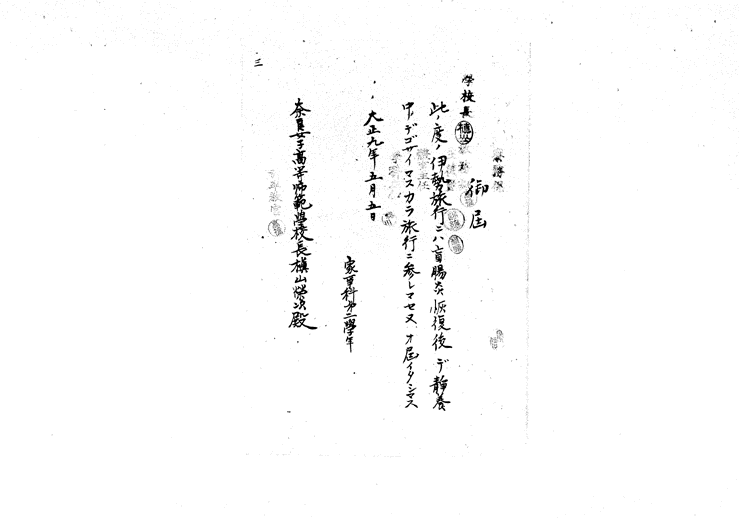 學校長
御屆
此ノ度ノ伊勢旅行ニハ盲腸炎恢復後デ靜養
中デゴザイマスカラ旅行ニ參レマセヌ オ屆イタシマス
大正九年五月五日
家事科第二學年
奈良女子高等師範學校長槇山榮次殿
三